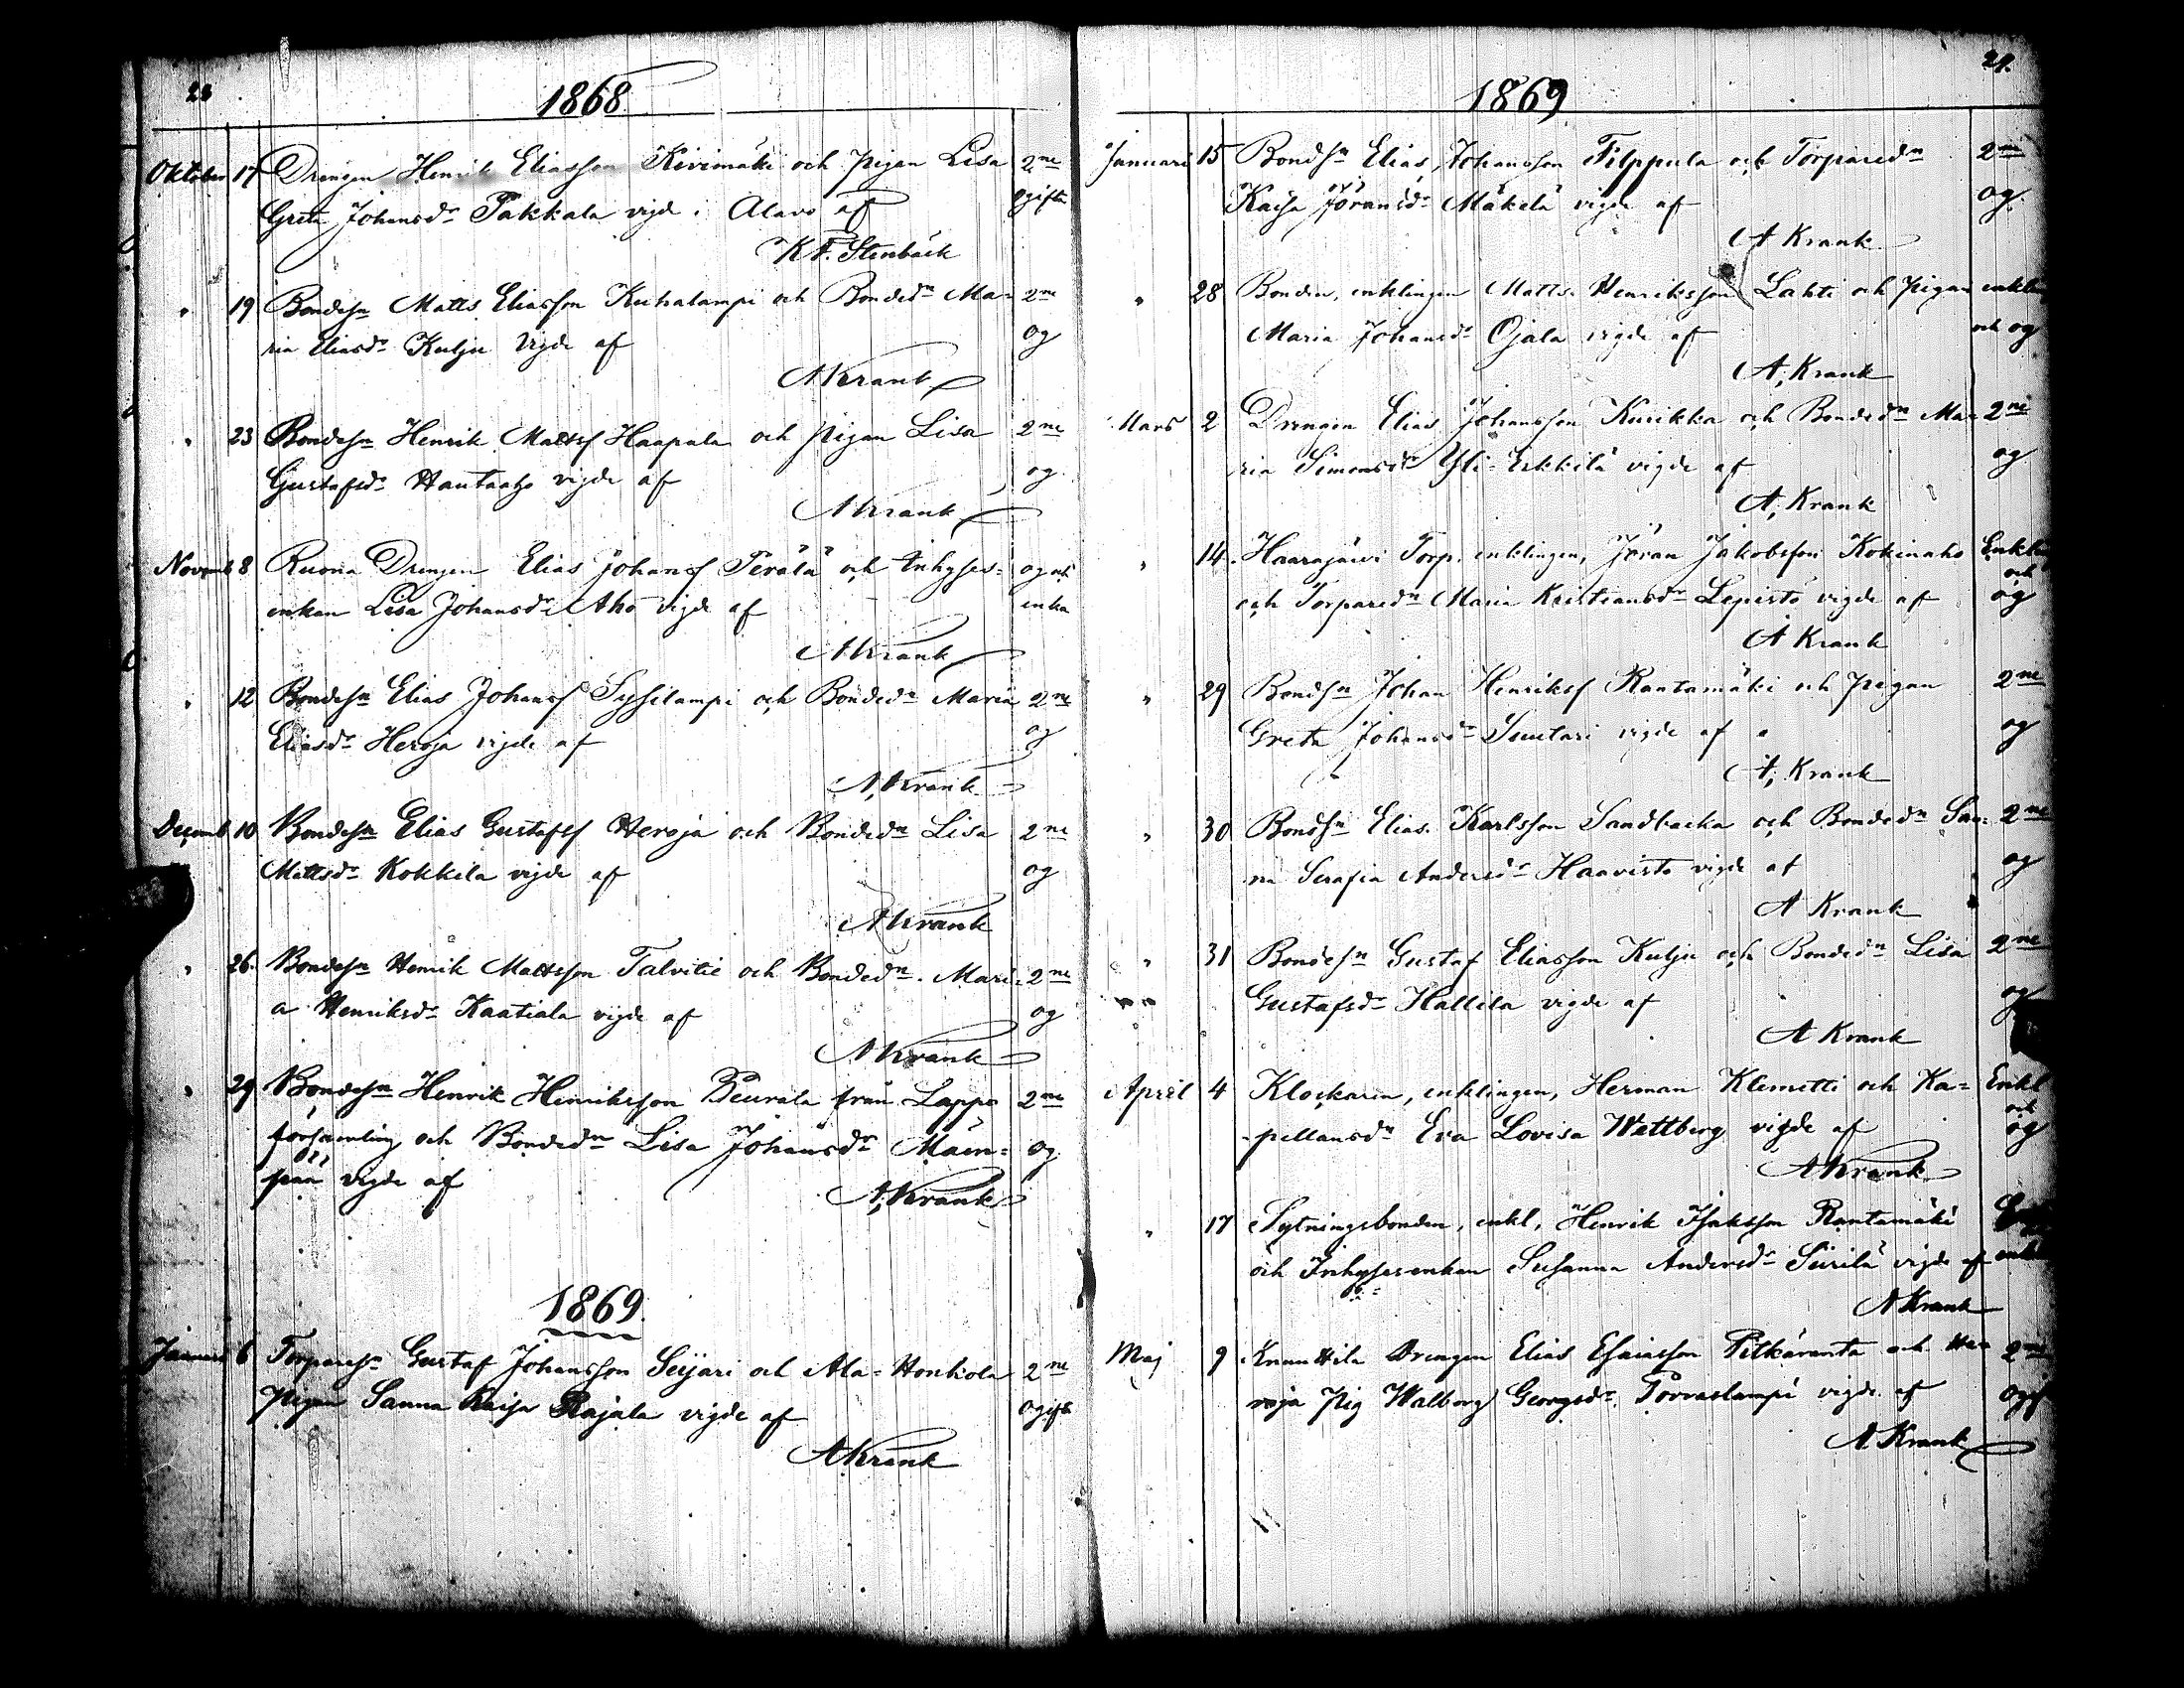 23
1868
Oktober 17 Drengen Henrik Eliasson Kivimäki och pigan Lisa 2ne
Greta Johansdr Pakkala vigde i Alavo af ogifta
K F. Stenbäck
" 19 Bondesn Matts Eliasson Kuhalampi och Bondedn Ma= 2ne
ria Eliasdr Kulju vigde af og
A Krank
" 23 Bondesn Henrik Mattsf Haapala och pigan Lisa 2ne
Gustafsdr Hautaaho vigde af og
A Krank
Novemb 8 Ruona Drengen Elias Johansf Perälä och Inhyses= og och
enkan Lisa Johansdr Aho vigde af enka
A Krank
" 12 Bondesn Elias Johansf Syssilampi och Bondedn Maria 2ne
Eliasdr Heroja vigde af og
A, Krank
Decemb 10 Bondesn Elias Gustafsf Heroja och Bondedn Lisa 2ne
Mattsdr Kokkila vigde af og
A Krank
" 26. Bondesn Henrik Mattsson Talvitie och Bondedn. Mari= 2ne
a Henriksdr Kaatiala vigde af og
A Krank
" 29 Bondesn Henrik Henriksson Peurala från Lappo 2ne
församling och Bondedn Lisa Johansdr Mäen= og
pää vigde af
A, Krank
1869.
Januari 6 Torparesn Gustaf Johansson Seijari och Ala=Honkola 2ne
Pigan Sanna Kaisa Rajala vigde af ogifta
A Krank
24.
1869
Januari 15 Bondsn Elias Johansson Filppula och Torparedn 2ne
Kaisa Jöransdr Mäkelä vigde af og.
A Krank
" 28 Bonden, enklingen Matts Henriksson Lahti och pigan enkl
Maria Johansdr Ojala vigde af och og
A, Krank
Mars 2 Drengen Elias Johansson Kurikka och Bondedn Ma= 2ne
ria Simonsdr Yli-Erkkilä vigde af og
A, Krank
" 14. Haarajärvi Torp. enklingen, Jöran Jakobsson Kokinaho Enkl
och Torparedn Maria Kristiansdr Lepistö vigde af och og
A Krank
" 29 Bondsn Johan Henriksf Rantamäki och pigan 2ne
Greta Johansdr Suutari vigde af og
A, Krank
" 30 Bondsn Elias Karlsson Sandbacka och Bondedn San= 2ne
na Serafia Andersdr Haavisto vigde af og
A Krank
" 31 Bondesn Gustaf Eliasson Kulju och Bondedn Lisa 2ne
Gustafsdr Hallila vigde af og
A Krank
April 4 Klockarin, enklingen, Herman Klemetti och Ka= Enkl
pellansdn Eva Lovisa Wettberg vigde af och og
A Krank
" 17 Sytningsbonden, enkl, Henrik Isaksson Rantamäki
och Inhysesenkan Susanna Andersdr Siirilä vigde af
A Krank
Maj 9 Knuuttila Drengen Elias Esaiasson Pitkäranta och He= 2ne
roja Pig Walborg Georgsdr Porraslampi vigde af ogif
A Krank